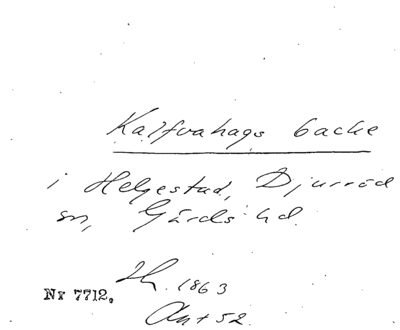 Kalfvahags backe
i Helgestad, Djurröd
sn, Gärds hd.
Th. 1863
Nr 7712.
Ant 52.